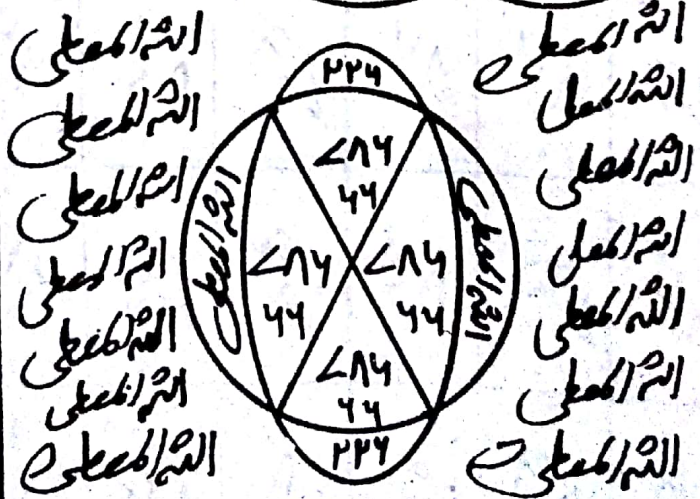 الله المعطی
الله المعطی
الله المعطی
الله المعطی
الله المعطی
الله المعطی
الله المعطی
۲۲۶
۷۸۶
۶۶
الله المعطی
۷۸۶
۶۶
۷۸۶
۶۶
الله المعطی
۷۸۶
۶۶
۲۲۶
الله المعطی
الله المعطی
الله المعطی
الله المعطی
الله المعطی
الله المعطی
الله المعطی